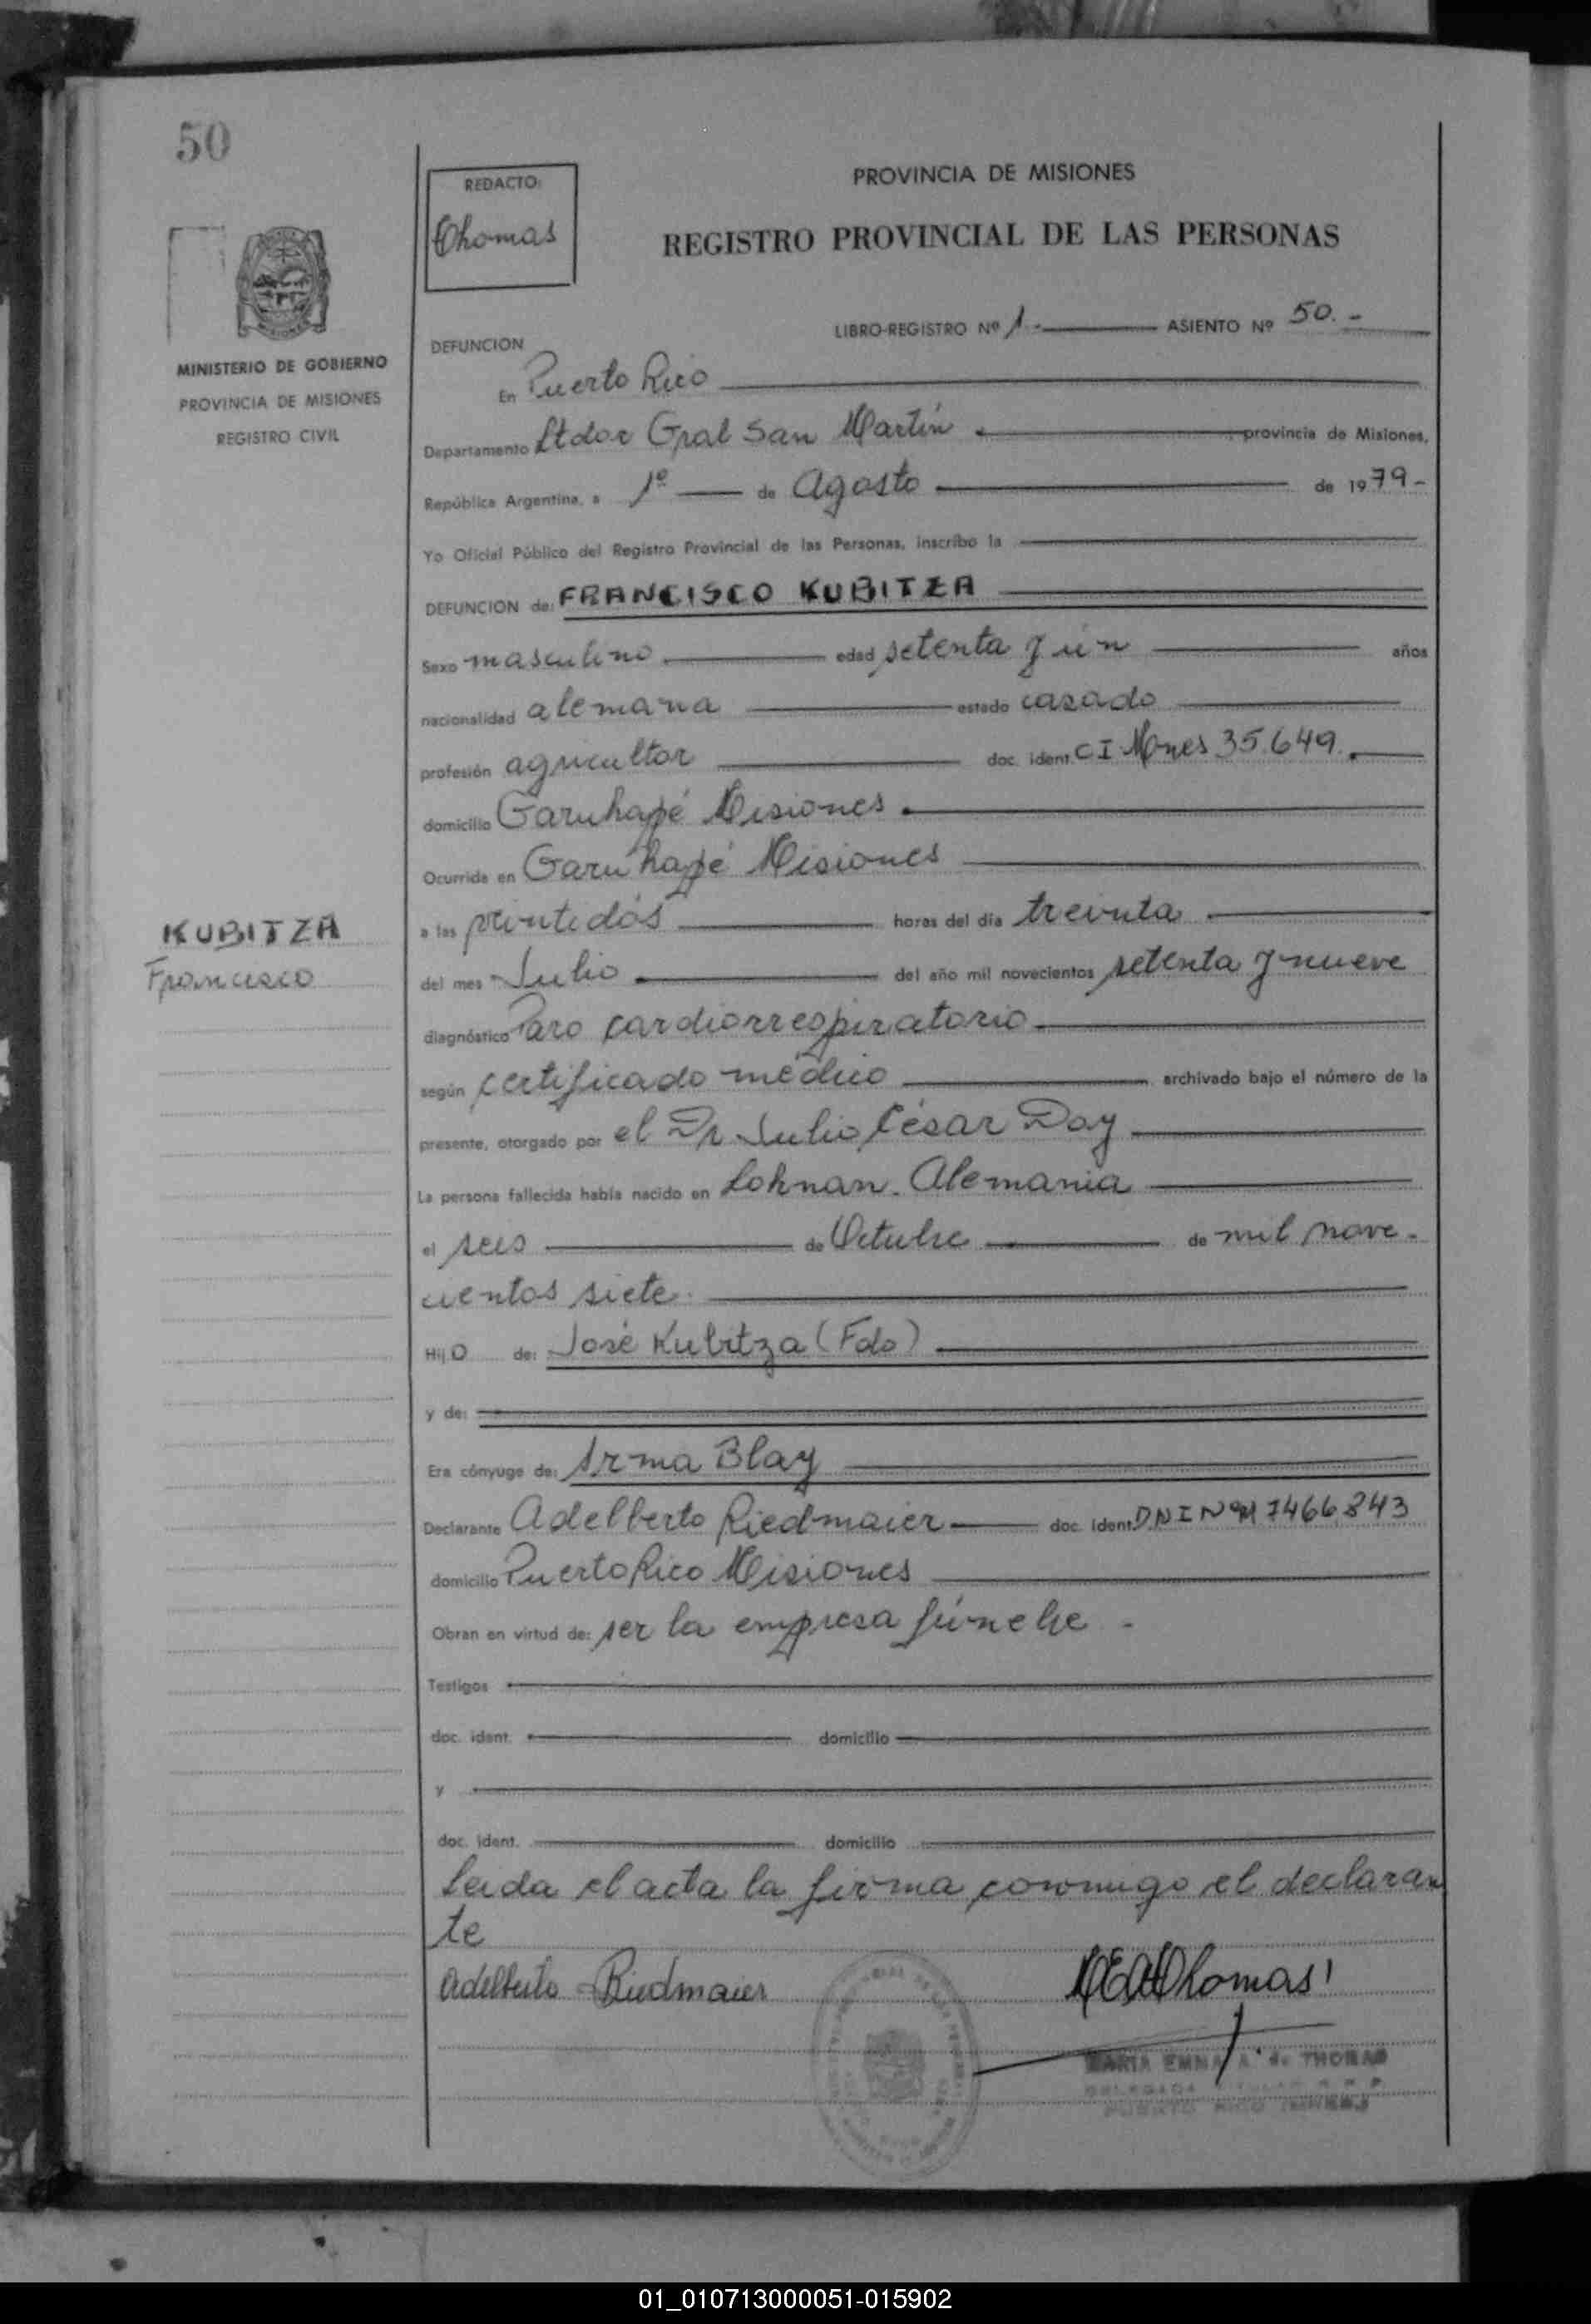 50
REDACTO:
Thomas
PROVINCIA DE MISIONES
REGISTRO PROVINCIAL DE LAS PERSONAS
MINISTERIO DE GOBIERNO
PROVINCIA DE MISIONES
REGISTRO CIVIL
LIBRO-REGISTRO Nº 1.- ASIENTO Nº 50.-
DEFUNCION
En Puerto Rico
Departamento Ltdor Gral San Martín provincia de Misiones,
República Argentina, a 1º de Agosto de 1979-
Yo Oficial Público del Registro Provincial de las Personas, inscribo la
DEFUNCION de: FRANCISCO KUBITZA
Sexo masculino edad setenta y un años
nacionalidad alemana estado casado
profesión agricultor doc. ident. CI Mnes 35.649.
domicilio Garuhapé Misiones
Ocurrida en Garuhapé Misiones
KUBITZA
Francisco
a las veintidós horas del día treinta
del mes Julio del año mil novecientos setenta y nueve
diagnóstico Paro cardiorrespiratorio
según certificado médico archivado bajo el número de la
presente, otorgado por el Dr. Julio César Day
La persona fallecida había nacido en Lohnan. Alemania
el seis de Octubre de mil nove-
cientos siete.
Hijo de: José Kubitza (Fdo)
y de:
Era cónyuge de: Irma Blay
Declarante Adelberto Riedmaier doc. ident. DNI Nº M 7466.843
domicilio Puerto Rico Misiones
Obran en virtud de: ser la empresa fúnebre -
Testigos
doc. ident. domicilio
y
doc. ident. domicilio
Leída el acta la firma conmigo el declaran
te
Adelberto Riedmaier
MEAThomas
MARIA EMMA A. de THOMAS
PUERTO RICO
01_010713000051-015902